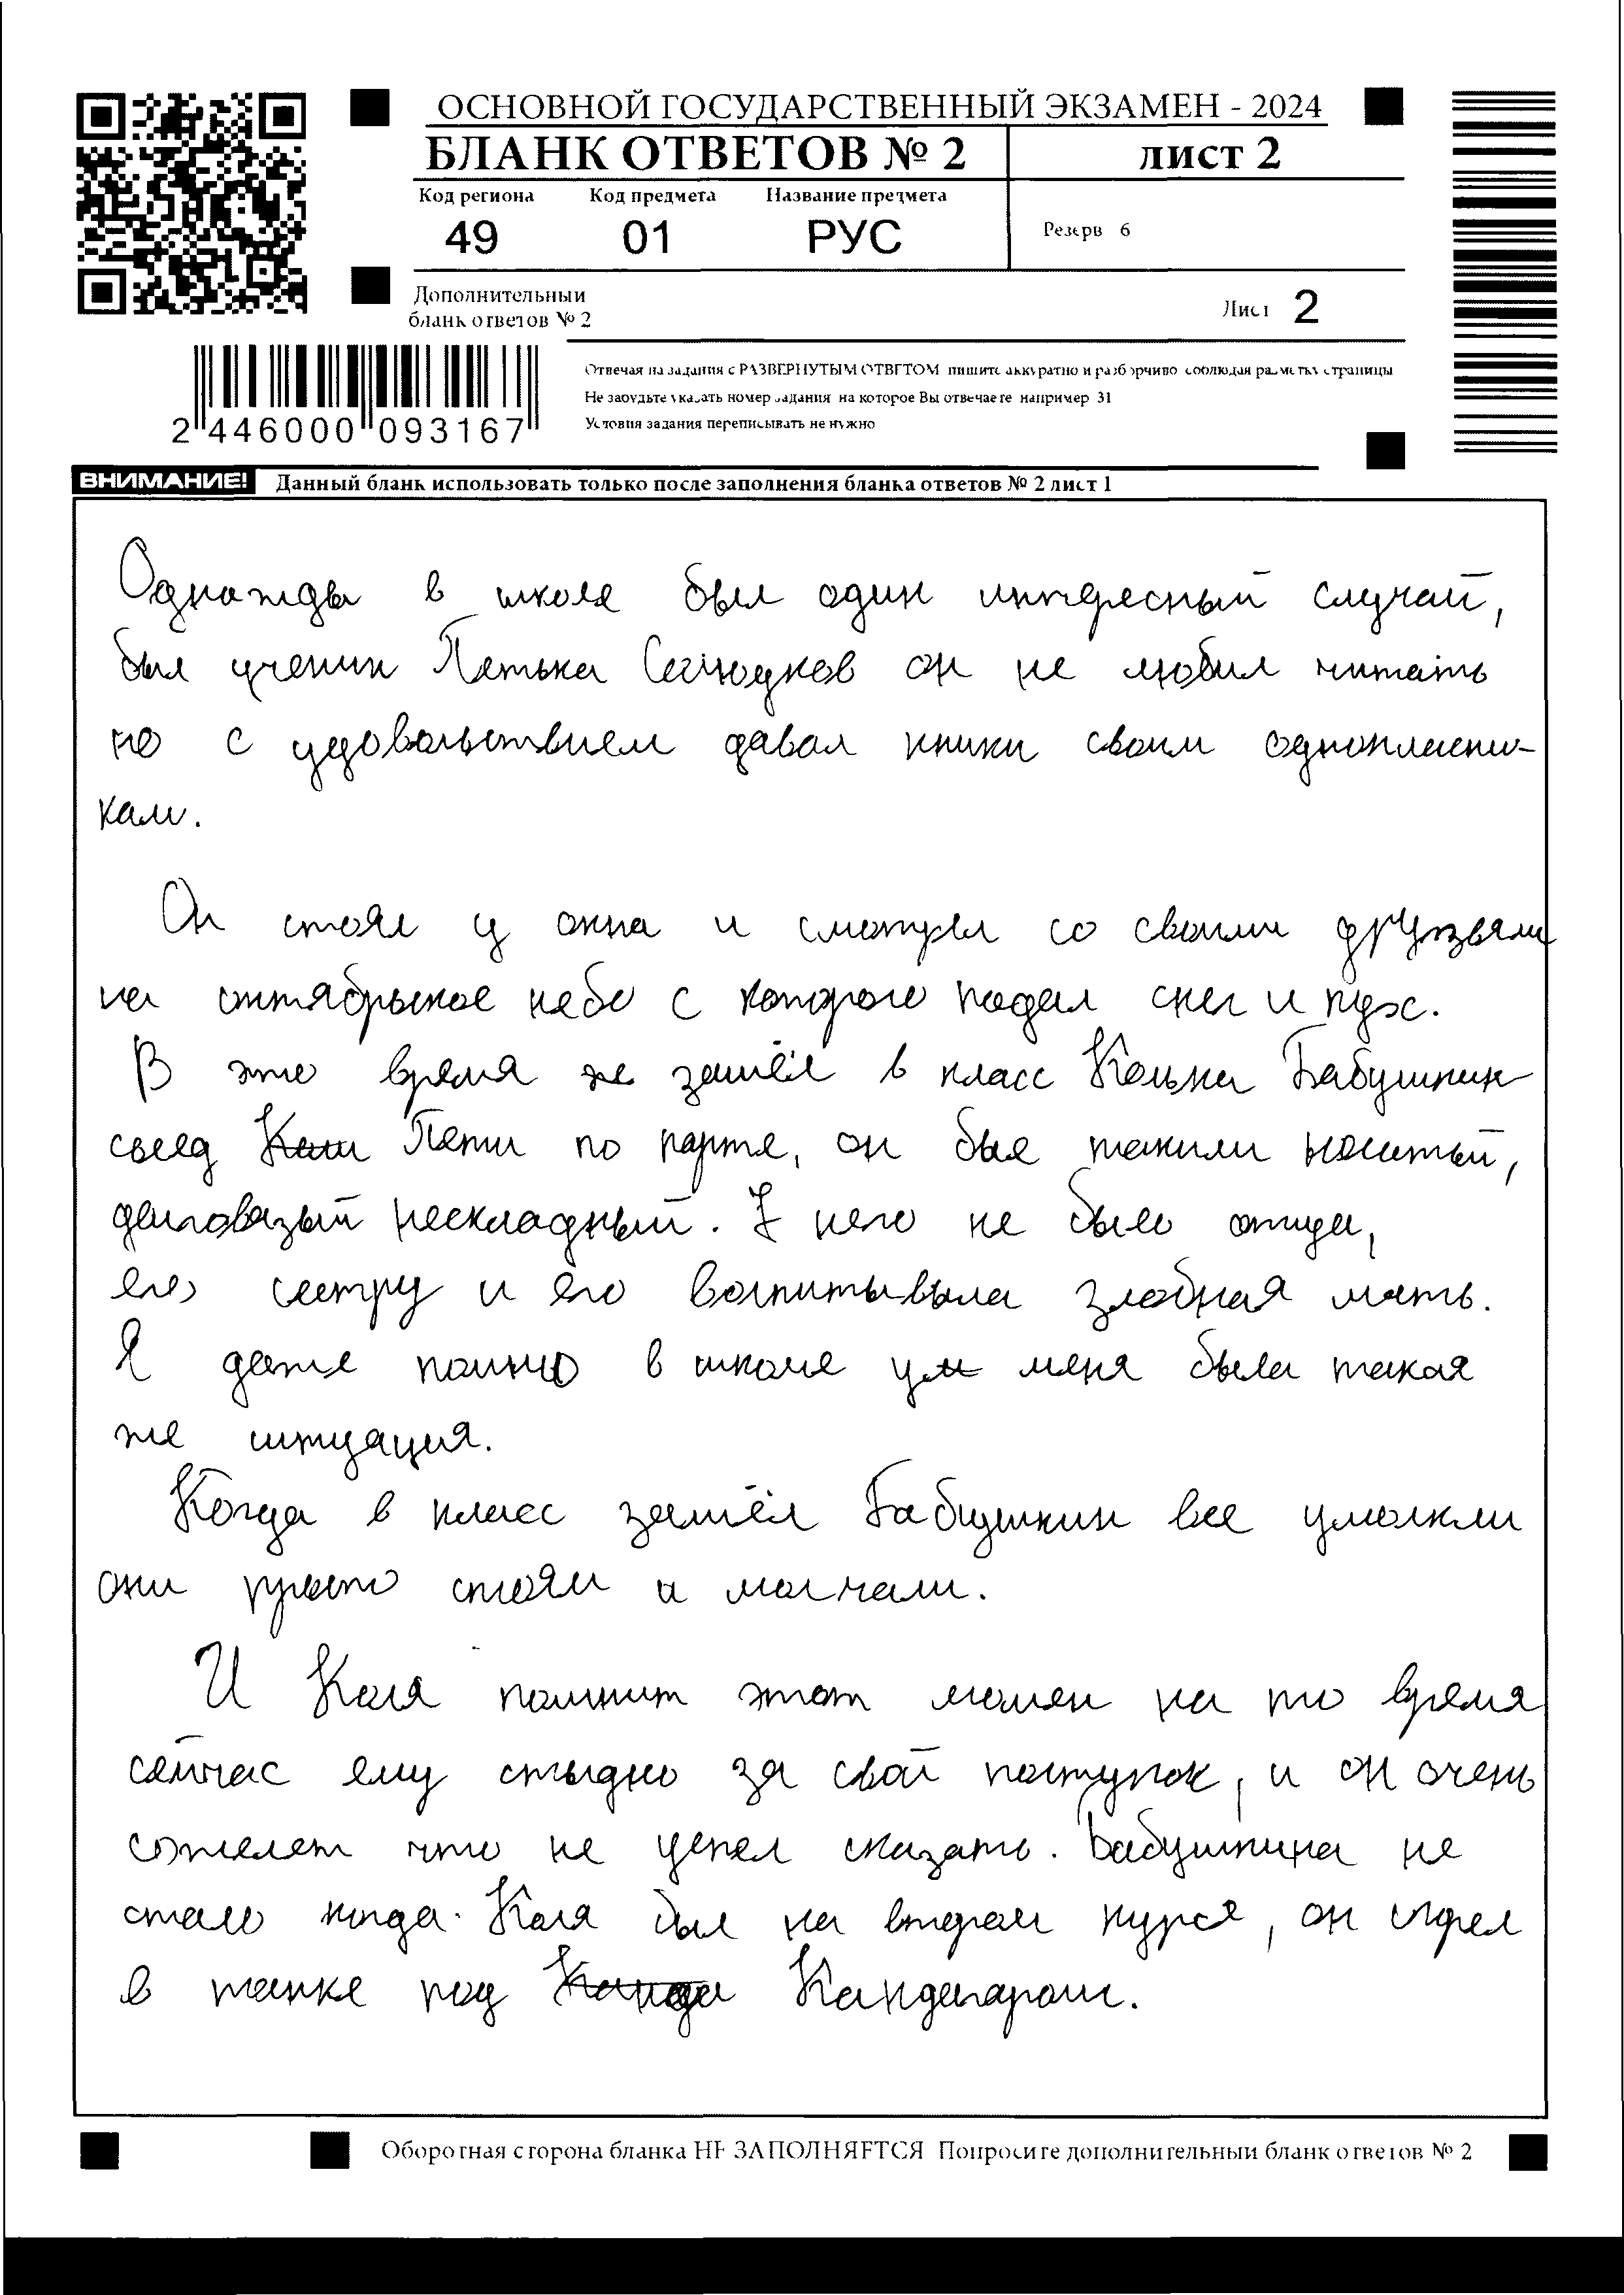 ОСНОВНОЙ ГОСУДАРСТВЕННЫЙ ЭКЗАМЕН - 2024
БЛАНК ОТВЕТОВ № 2 лист 2
Код региона Код предмета Название предмета
49 01 РУС
Резерв 6
Дополнительный
бланк ответов № 2
Лист 2
Отвечая на задания с РАЗВЕРНУТЫМ ОТВЕТОМ пишите аккуратно и разборчиво соблюдая разметку страницы
Не забудьте указать номер задания на которое Вы отвечаете например 31
Условия задания переписывать не нужно
2 446000 093167
ВНИМАНИЕ! Данный бланк использовать только после заполнения бланка ответов № 2 лист 1
Однажды в школе был один интересный случай,
был ученик Петька он не любил читать
но с удовольствием давал кники своим однокласни-
кам.
Он стоял у окна и смотрел со своими друзьями
на октябрьское небо с которого подал снег и пух.
В это время же зашёл в класс Колька Бабушкин
сосед Пети по парте, он был такими
долговязый нескладный. У него не было отца,
его сестру и его воспитывыла злобная мать.
Я даже помню в школе у меня была такая
же ситуация.
Когда в класс зашёл Бабушкин все умолкли
они просто стояли и молчали.
И Коля помнит этот момен на то время
сейчас ему стыдно за свой поступок, и он очень
сожелеет что не успел сказать. Бабушкина не
стало когда. Коля был на втором курсе, он сгорел
в танке под Кандагаром.
Оборотная сторона бланка НЕ ЗАПОЛНЯЕТСЯ Попросите дополнительный бланк ответов № 2